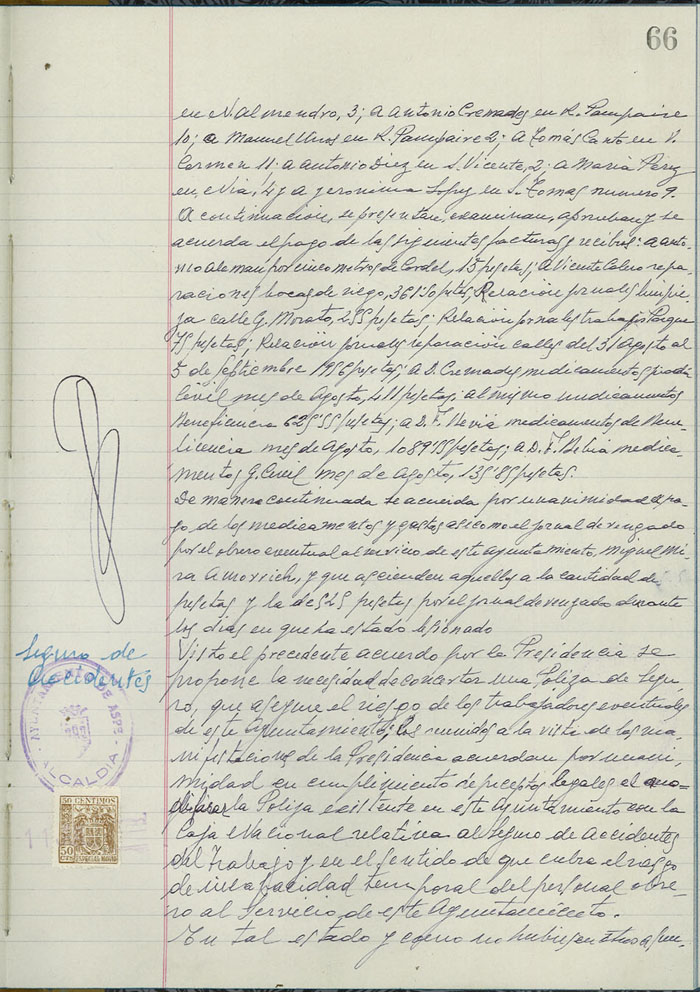 66
en N. Almendro, 3; a Antonio Cremades en R. Pampaire
10; a Manuel en R. Pampaire 2; a Tomás Canto en V.
Carmen 11. a Antonio Diez en S. Vicente, 2; a Maria Pérez
en Via, 4 y a Jeronima Lopez en S. Tomas numero 9.
A continuación, se presentan, examinan, aprueban y se
acuerda el pago de las siguientes facturas y recibos: a Anto-
nio Aleman por cinco metros de Cordel, 15 pesetas; a Vicente Calero repa-
raciones bocas de riego, 361'50 ptas, Relación jornales limpie-
za calle G. Morato, 255 pesetas; Relación jornales trabajos Parque
75 pesetas; Relación jornales reparación calles del 31 Agosto al
5 de Septiembre 1956 pesetas; a D. Cremades medicamentos
Civil mes de Agosto, 411 pesetas; al mismo medicamentos
Beneficencia 625'55 pesetas; a D. F. Nevia medicamentos de Bene-
ficencia mes de Agosto, 1089'55 pesetas; a D. F. medica-
mentos G. Civil mes de Agosto, 135'85 pesetas.
De manera continuada se acuerda por unanimidad el pa-
go de los medicamentos y gastos asi como el jornal devengado
por el obrero eventual al servicio de este Ayuntamiento, Miguel Mi-
ra Amorrich, y que ascienden aquellos a la cantidad de
pesetas y la de 525 pesetas por el jornal devengado durante
los dias en que ha estado lesionado
Seguro de
Accidentes
Visto el precedente acuerdo por la Presidencia se
propone la necesidad de concertar una Poliza de Segu-
ro, que asegure el riesgo de los trabajadores eventuales
de este Ayuntamiento; los reunidos a la vista de las ma-
nifestaciones de la Presidencia acuerdan por unani-
midad en cumplimiento de preceptos legales el mo-
dificar la Poliza existente en este Ayuntamiento con la
Caja Nacional relativa al Seguro de Accidentes
del Trabajo y en el sentido de que cubra el riesgo
de incapacidad temporal del personal obre-
ro al servicio de este Ayuntamiento.
En tal estado y como no hubiesen otros asun-
AYUNTAMIENTO DE ASPE
ALCALDIA
50 CENTIMOS
50 CTS